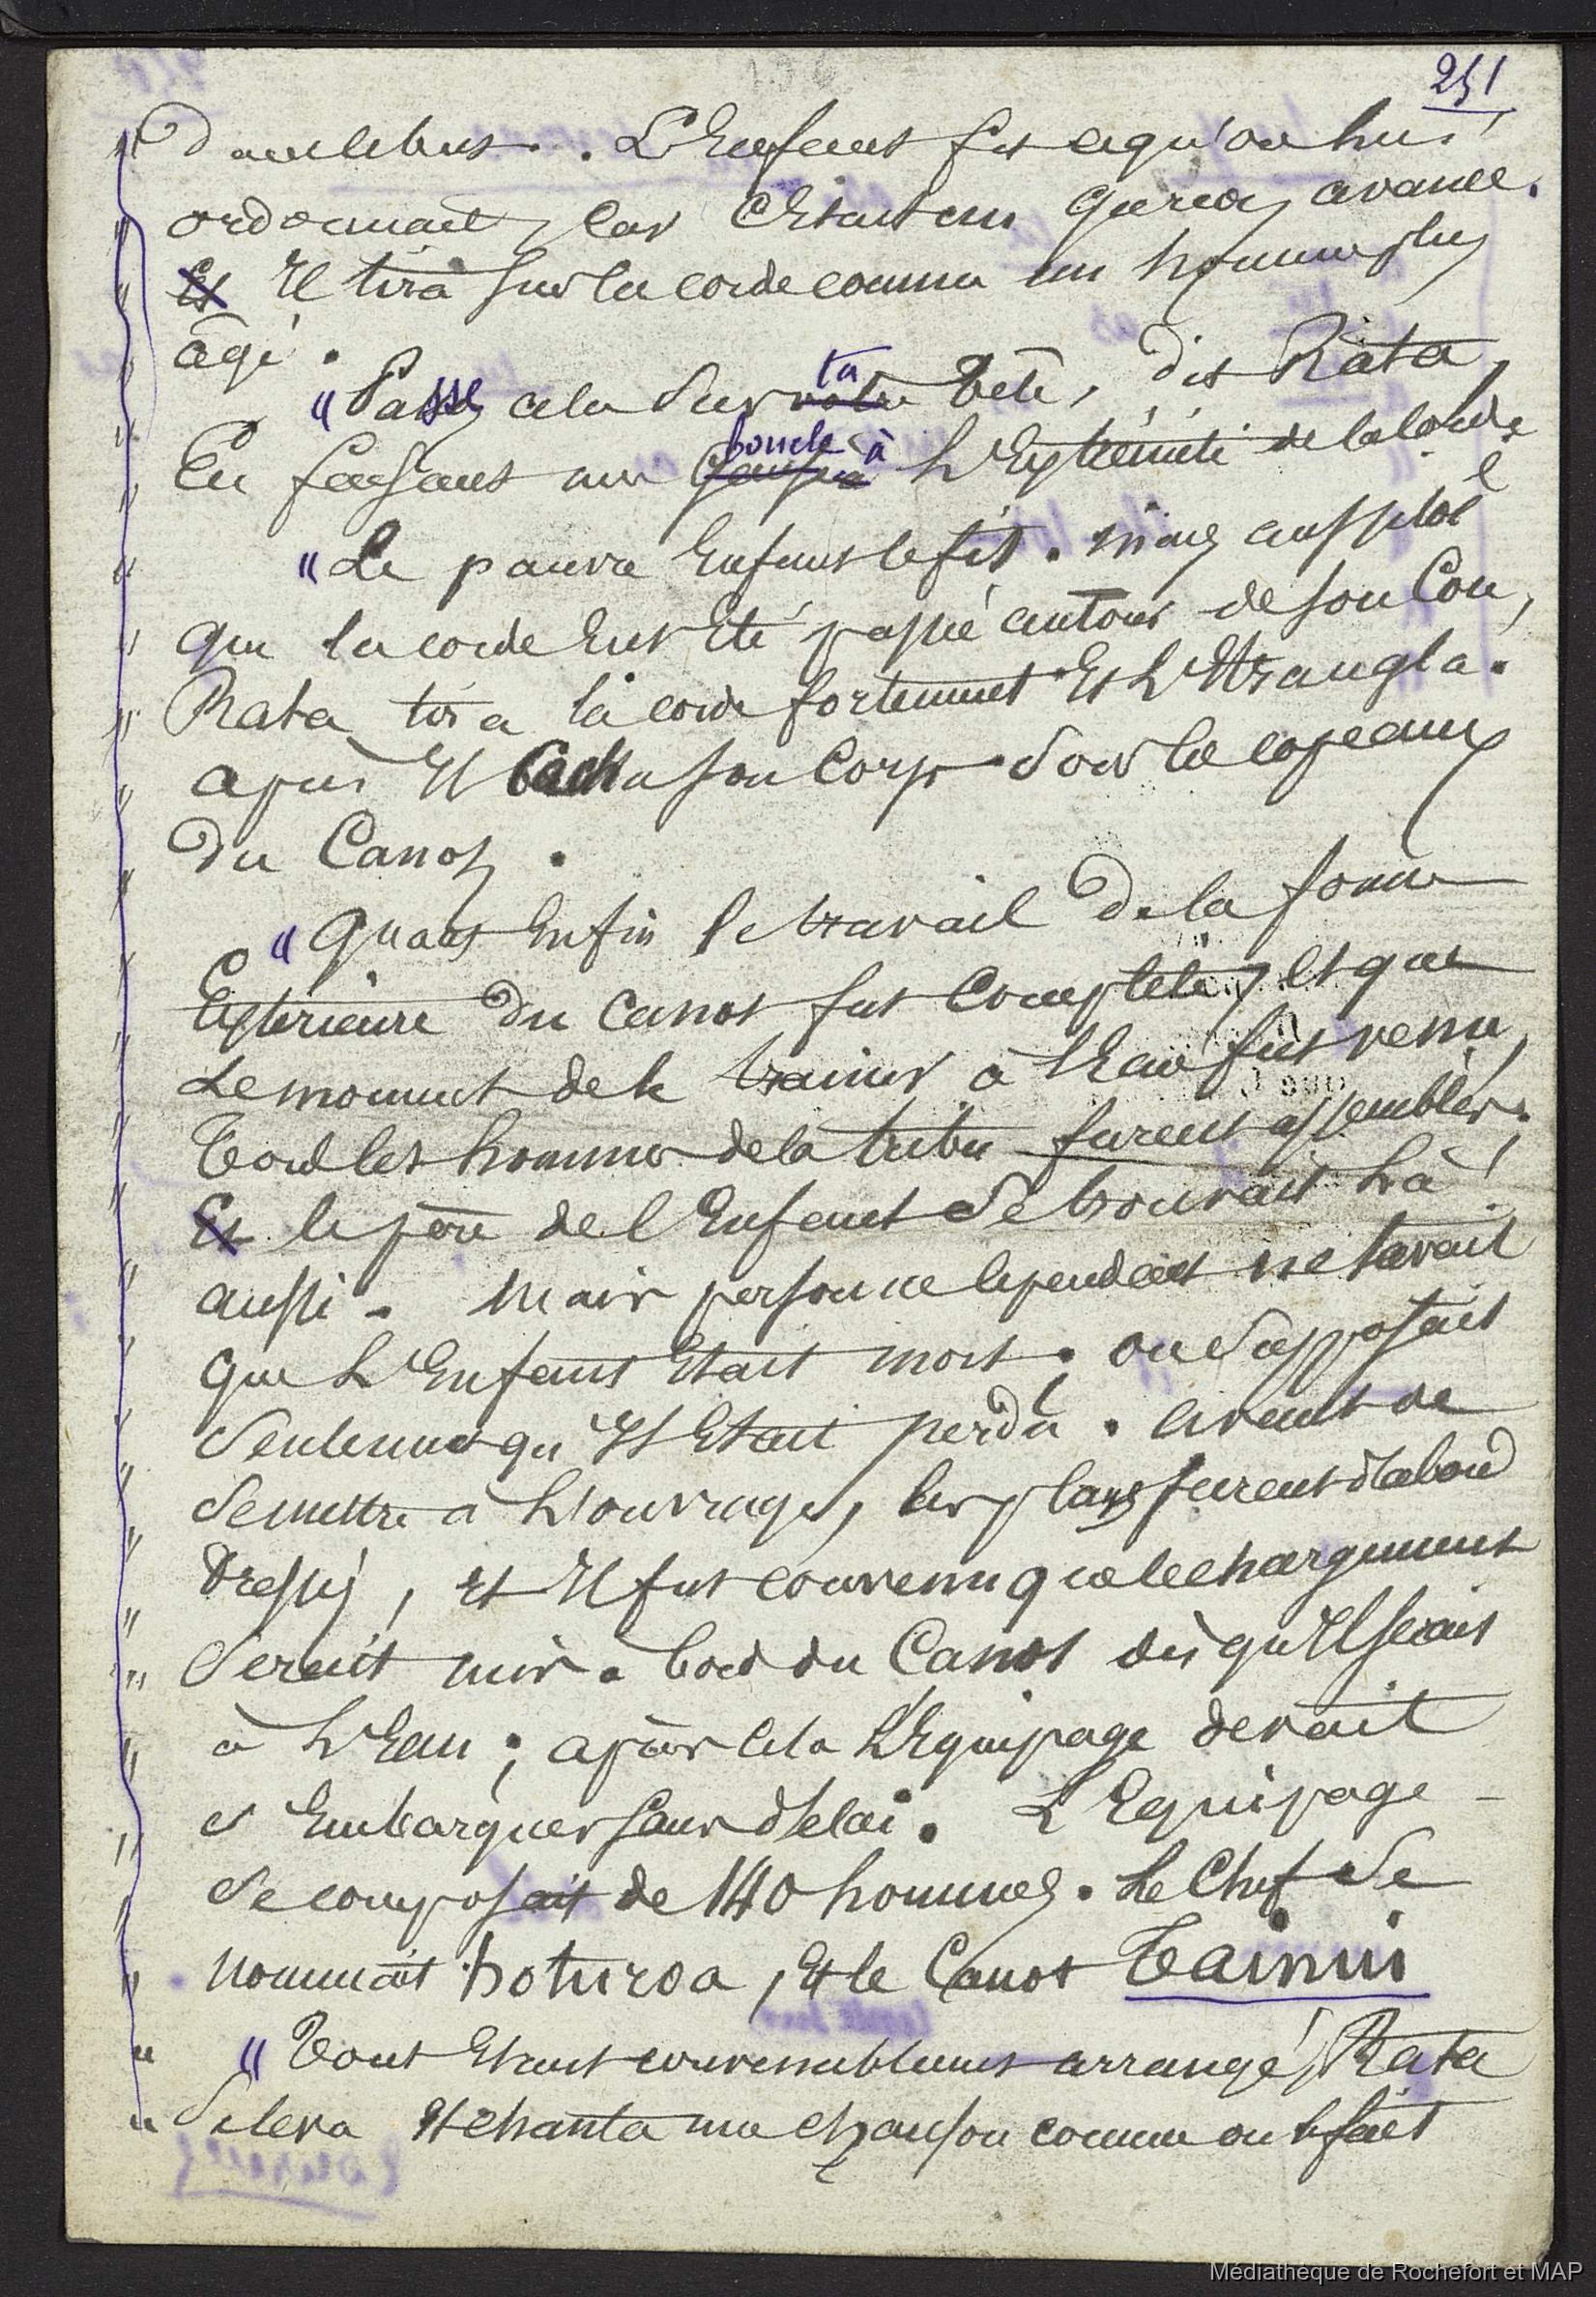 251
dans le bus. L'Enfant fit ce qu'on lui
ordonnait, car C'Etait un garçon avancé.
Et Il tira sur la corde comme un homme plus
âgé.
"Passez cela sur votre ta tête, dit Rata,
En faisant une boucle à L'Extrémité de la corde
"Le pauvre Enfant le fit. Mais aussitôt
que la corde Eut Eté passée autour de son Cou,
Rata tira la corde fortement Et L'Etrangla.
après Il Cacha son Corps sous les copeaux
du Canot.
"Quand Enfin le travail de la forme
Extérieure du canot fut Complété, et que
Le moment de le trainer à l'Eau fut venu,
Tous les hommes de la tribu furent assemblés;
Et le père de l'Enfant se trouvait Là
aussi. Mais personne cependant ne savait
que L'Enfant Etait mort; on supposait
Seulement qu'Il Etait perdu. avant de
Se mettre à L'ouvrage, les plans furent d'abord
Dressés, Et Il fut convenu que le chargement
Serait mis à bord du Canot dès qu'Il serait
à L'Eau; après cela L'Equipage devait
s'Embarquer sans délai. L'Equipage
Se composait de 140 hommes. Le Chef se
nommait hoturoa, Et le Canot Tainui
"Tout Etant convenablement arrangé, Rata
Se leva Et chanta une chanson comme on le fait
Médiathèque de Rochefort et MAP